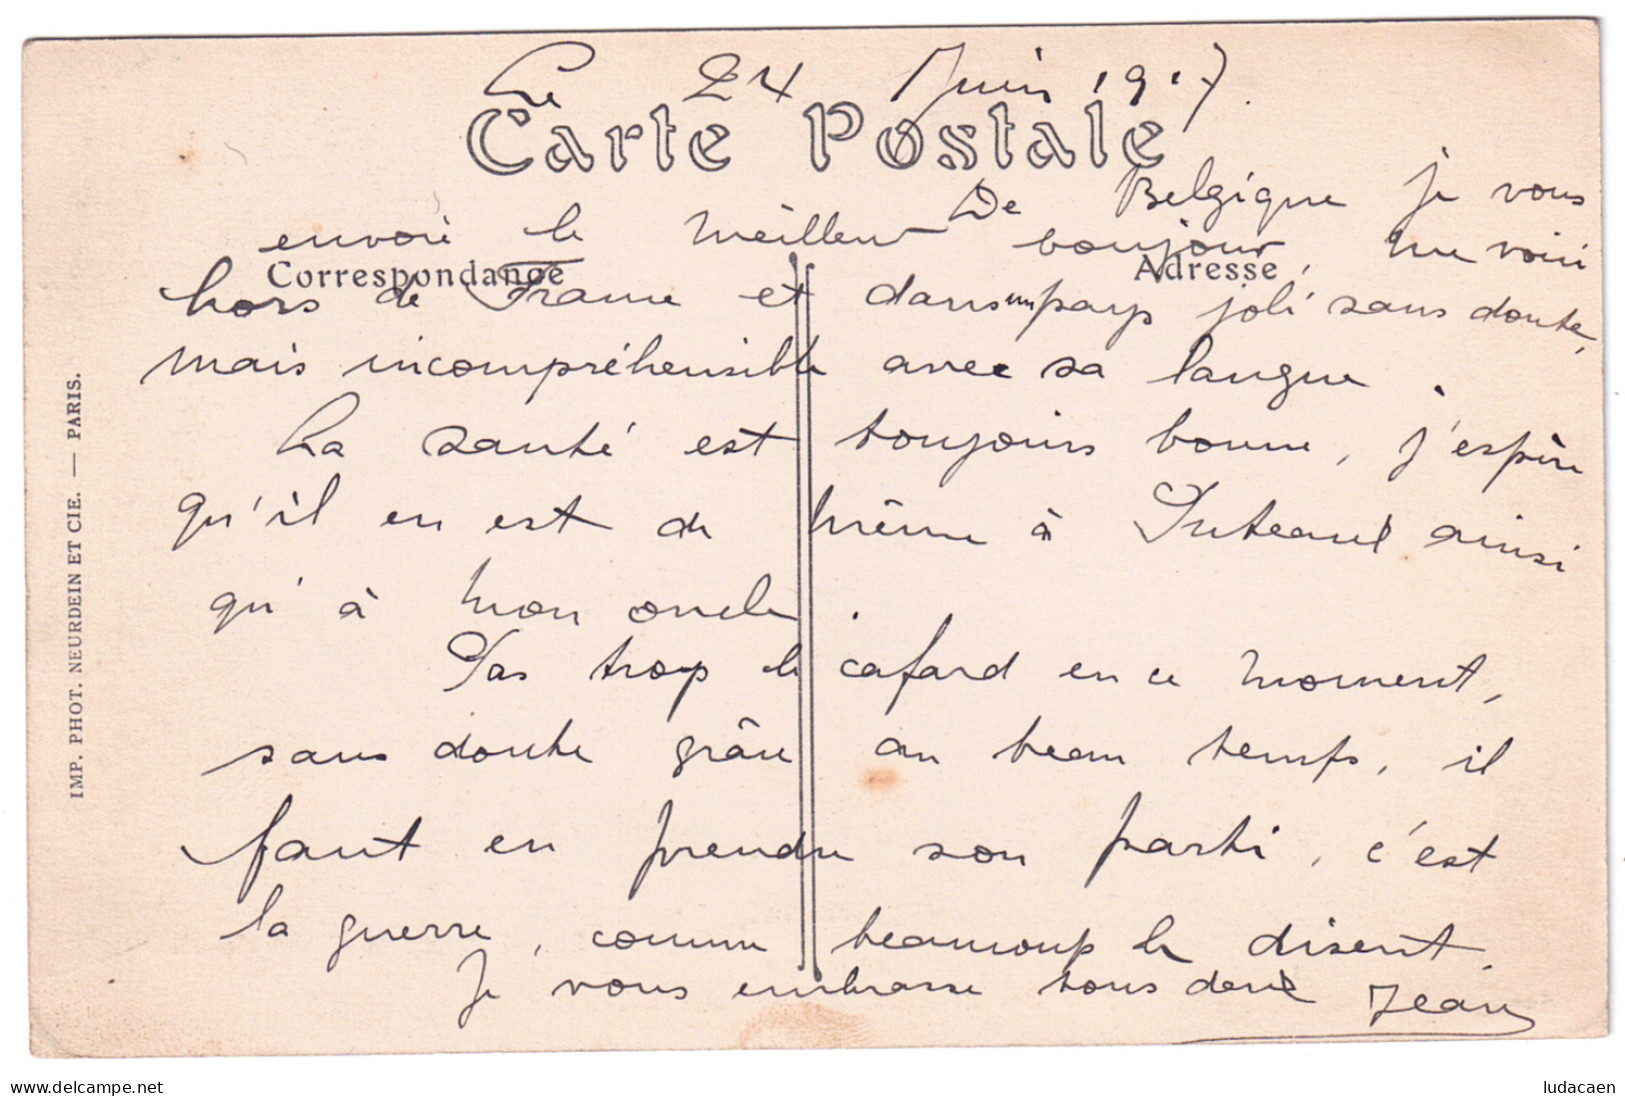 Le 24 Juin 1917.
Carte Postale
De Belgique je vous
envoie le meilleur bonjour, me voici
Correspondance Adresse
hors de France et dans un pays joli sans doute,
mais incompréhensible avec sa langue.
La santé est toujours bonne, j'espère
qu'il en est de même à Puteaux ainsi
qu'à mon oncle
Pas trop le cafard en ce moment,
sans doute grâce au beau temps, il
faut en prendre son parti, c'est
la guerre, comme beaucoup le disent.
Je vous embrasse tous deux Jean
IMP. PHOT. NEURDEIN ET CIE. — PARIS.
www.delcampe.net ludacaen